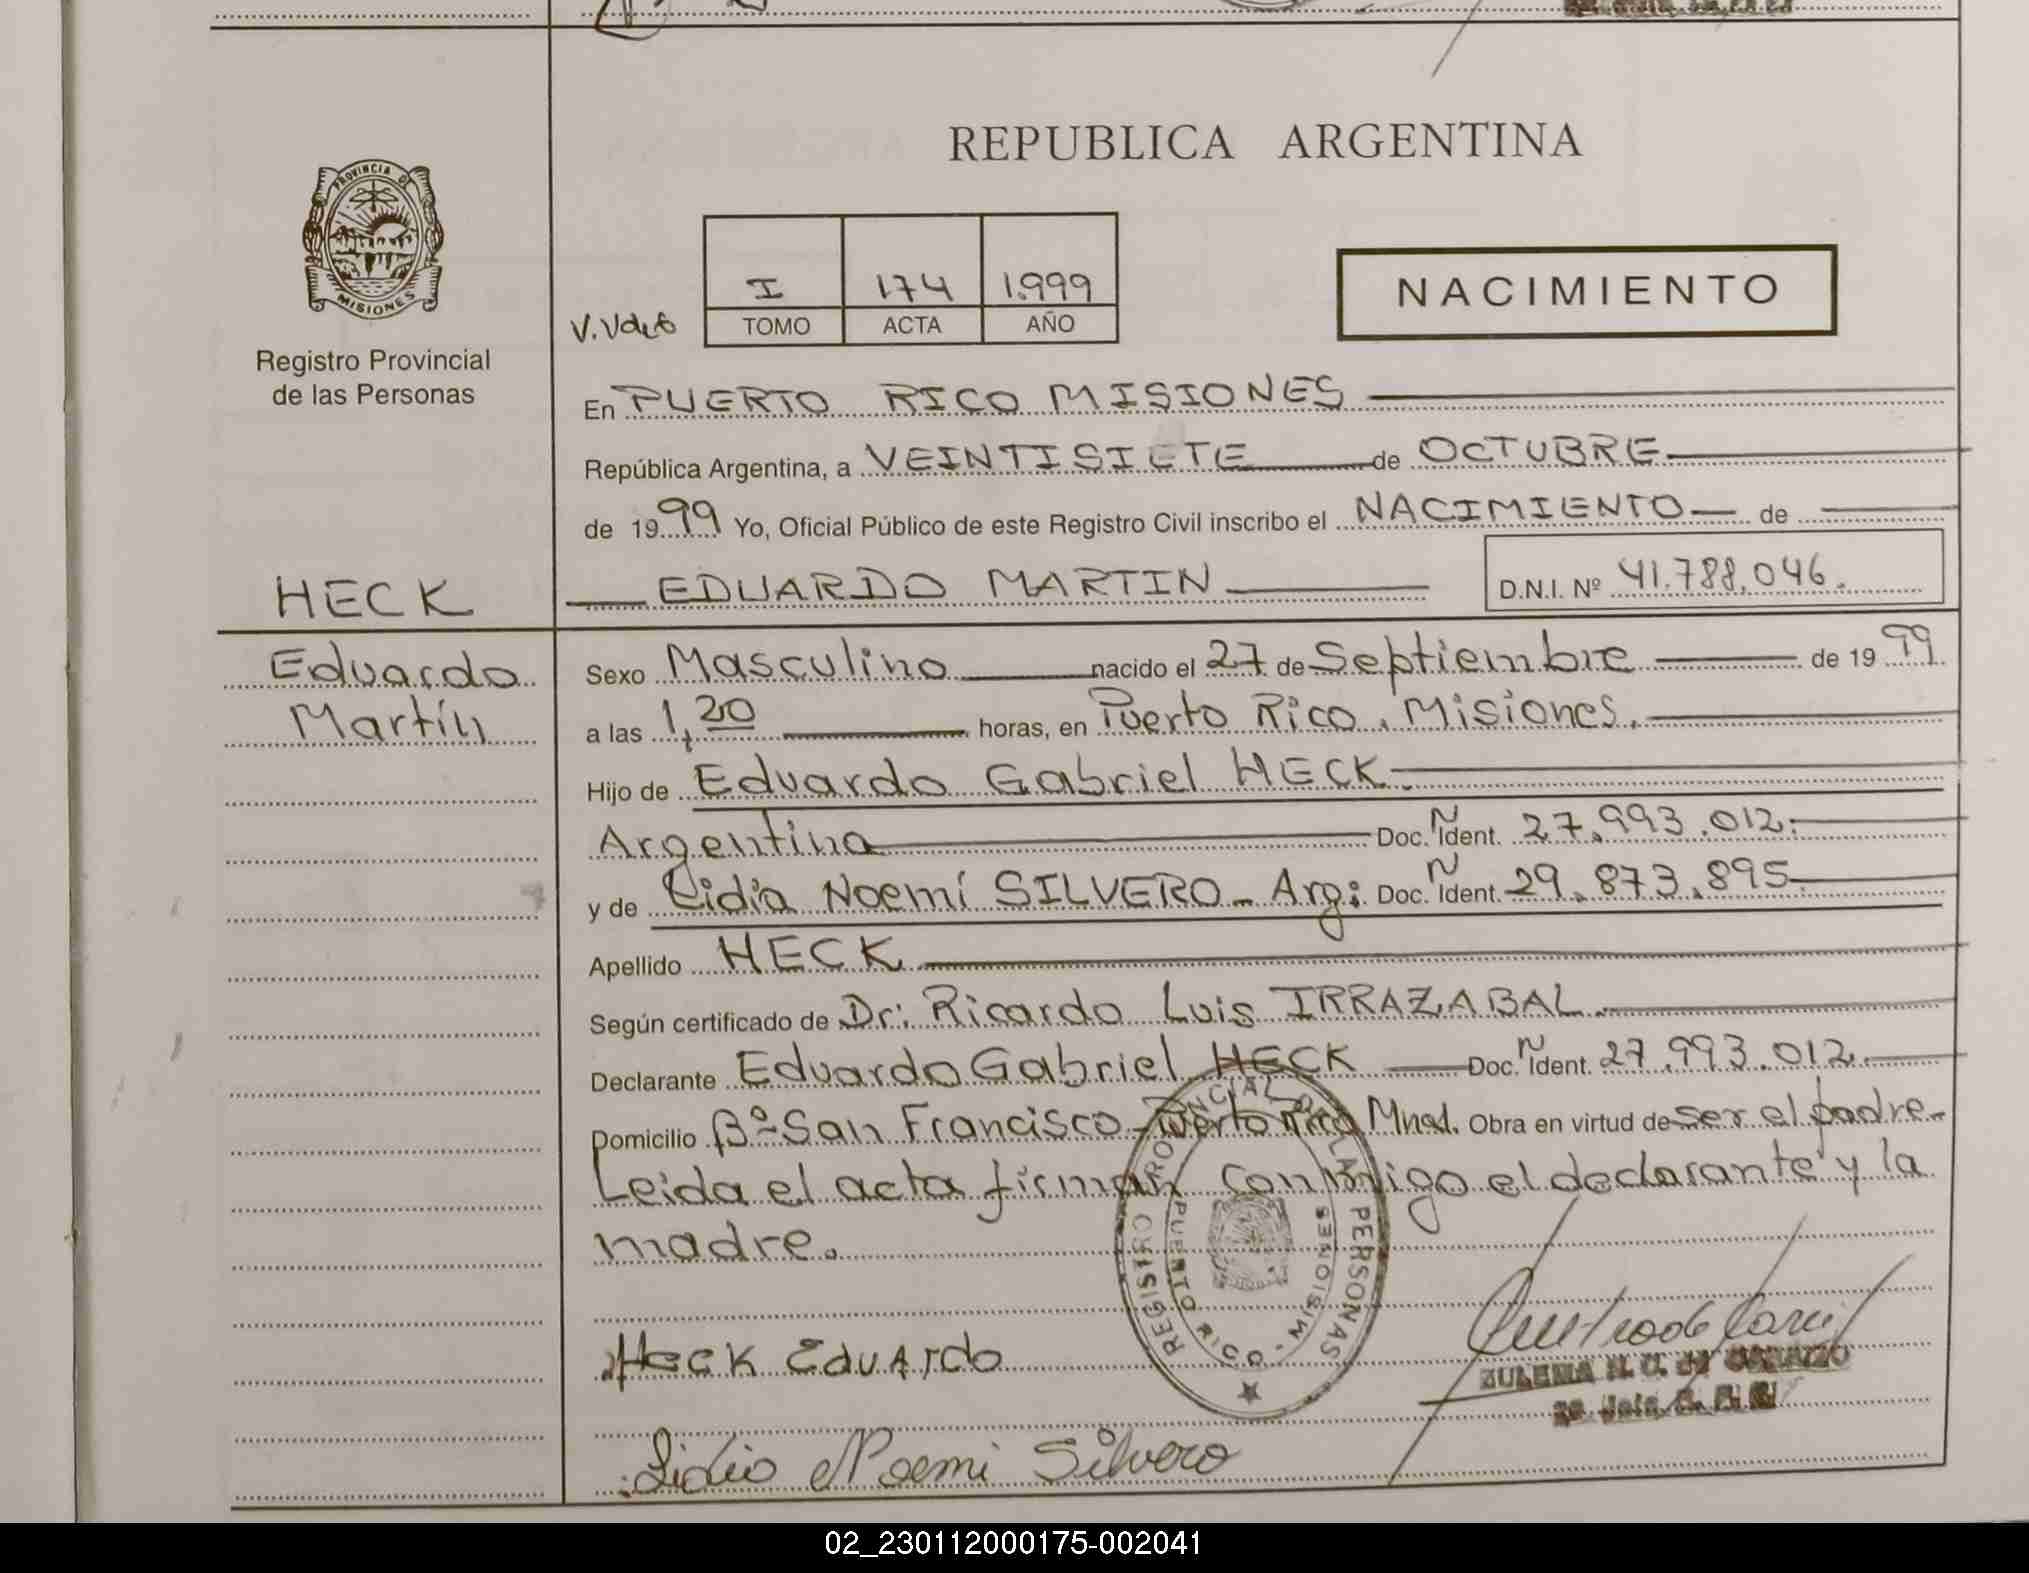 REPUBLICA ARGENTINA
PROVINCIA DE
MISIONES
Registro Provincial
de las Personas
I 174 1.999
TOMO ACTA AÑO
NACIMIENTO
En PUERTO RICO MISIONES
República Argentina, a VEINTISIETE de OCTUBRE
de 1999 Yo, Oficial Público de este Registro Civil inscribo el NACIMIENTO de
HECK
EDUARDO MARTIN
D.N.I. Nº 41.788.046.
Eduardo
Martín
Sexo Masculino nacido el 27 de Septiembre de 1999
a las 1,20 horas, en Puerto Rico. Misiones.
Hijo de Eduardo Gabriel HECK.
Argentina Doc. Ñ Ident. 27.993.012.
y de Lidia Noemí SILVERO - Arg: Doc. Ñ Ident. 29.873.895.
Apellido HECK
Según certificado de Dr: Ricardo Luis IRRAZABAL.
Declarante Eduardo Gabriel HECK Doc. Ñ Ident. 27.993.012.
Domicilio Bº San Francisco - Puerto Rico Mnes. Obra en virtud de ser el padre.
Leida el acta firman conmigo el declarante y la
madre.
REGISTRO PROVINCIAL DE LAS PERSONAS
PUERTO RICO - MISIONES
Heck Eduardo
Lidia Noemi Silvero
02_230112000175-002041